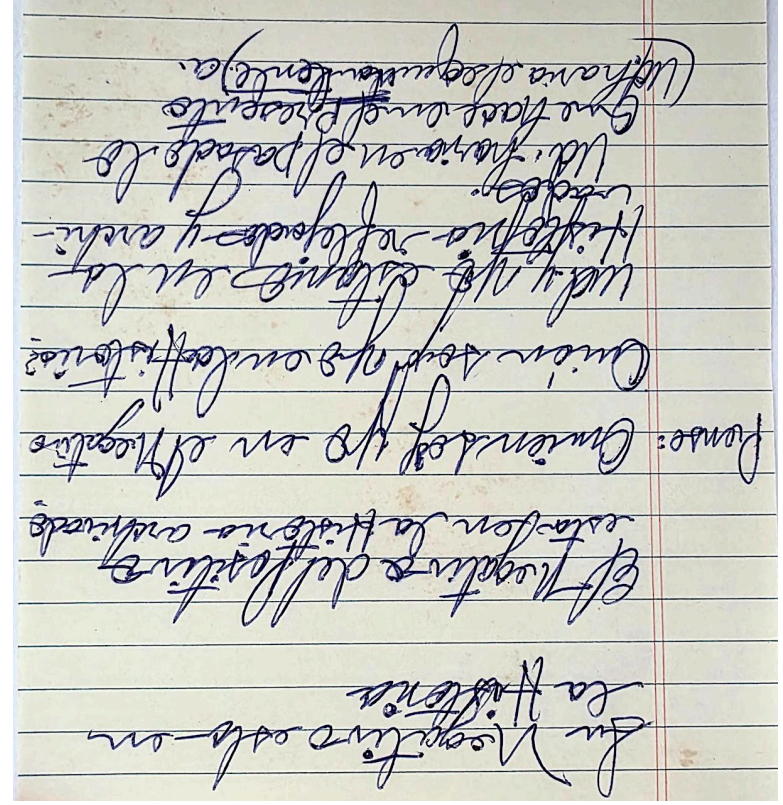 Su Negativo esta en
la Historia
El Negativo del Positivo
está en la Historia archivado
Piense: Quién soy yo en el Negativo
Quién soy yo en la Historia?
Ud y yo estamos en la
Historia reflejados y archi-
vados.
Ud. haria en el pasado lo
que hace en el presente
(Ud. haria el equivalente) a.